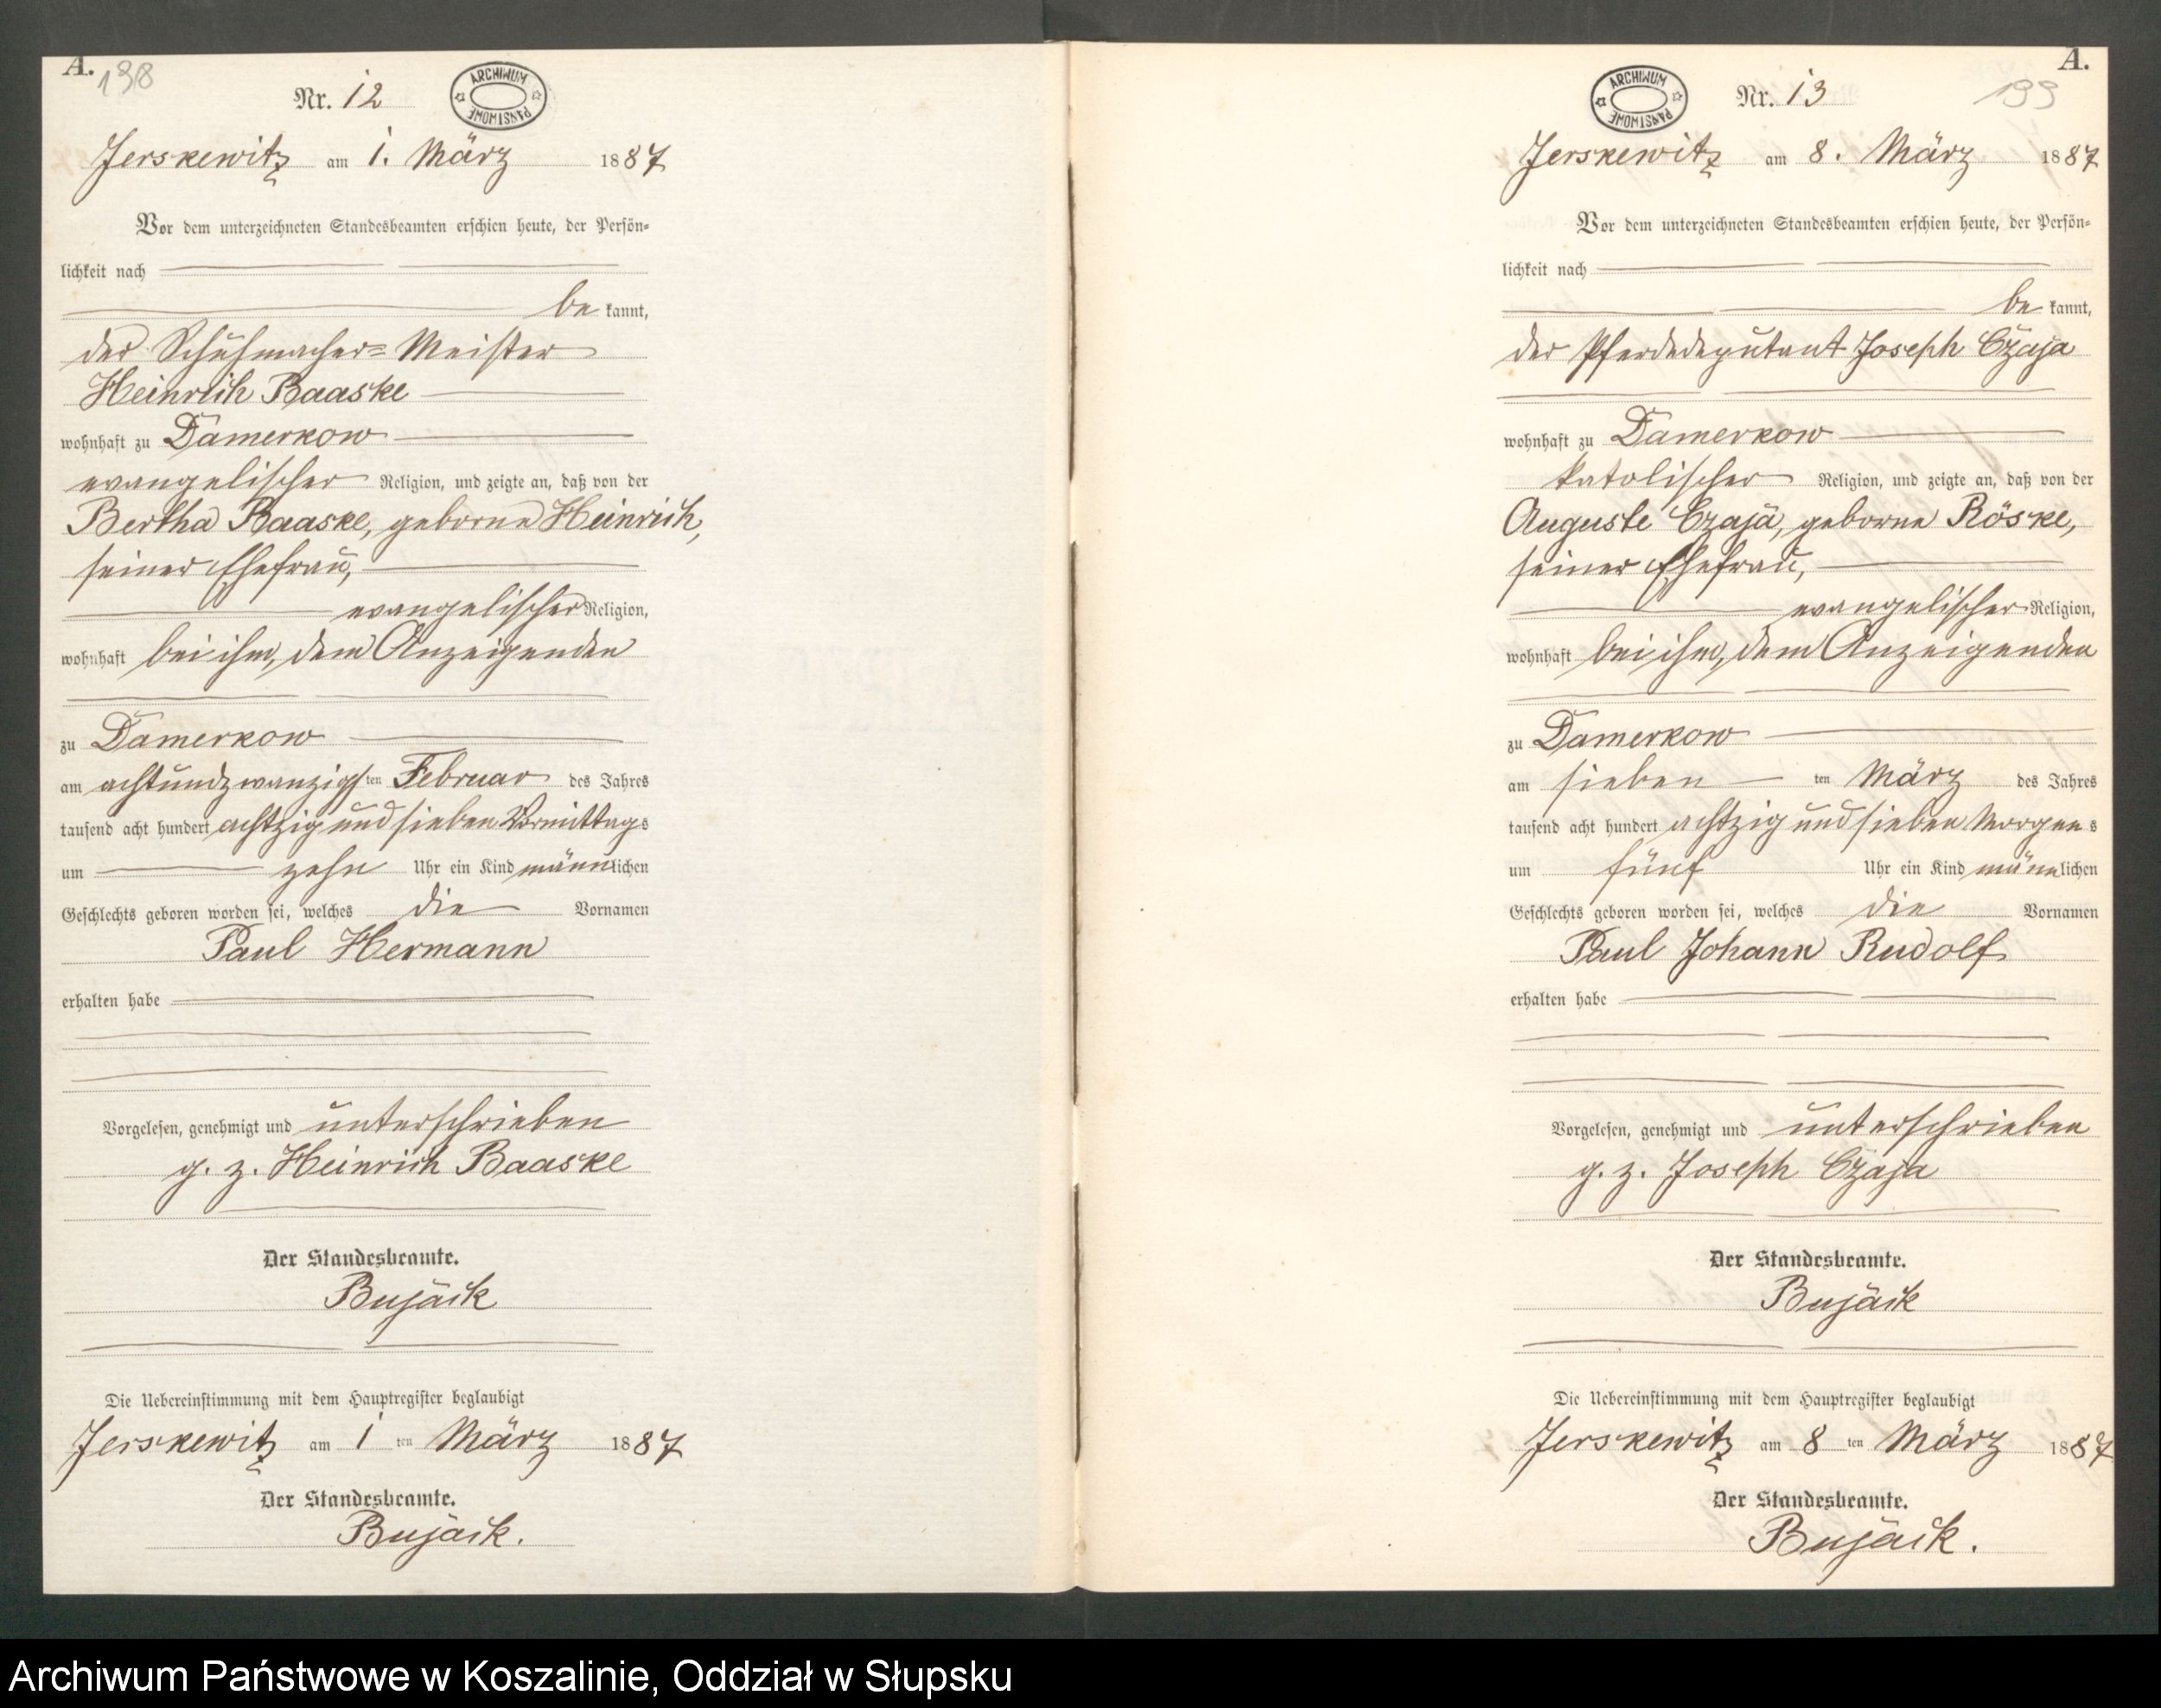 A.
138
Nr. 12
ARCHIWUM PAŃSTWOWE
Jerskewitz am 1. März 1887
Vor dem unterzeichneten Standesbeamten erschien heute, der Persön-
lichkeit nach
be kannt,
der Schuhmacher-Meister
Heinrich Baaske
wohnhaft zu Damerkow
evangelischer Religion, und zeigte an, daß von der
Bertha Baaske, geborne Heinrich,
seiner Ehefrau,
evangelischer Religion,
wohnhaft bei ihm, dem Anzeigenden
zu Damerkow
am achtundzwanzigsten Februar des Jahres
tausend acht hundert achtzig und sieben Vormittags
um zehn Uhr ein Kind männlichen
Geschlechts geboren worden sei, welches die Vornamen
Paul Hermann
erhalten habe
Vorgelesen, genehmigt und unterschrieben
g. z. Heinrich Baaske
Der Standesbeamte.
Bujack
Die Uebereinstimmung mit dem Hauptregister beglaubigt
Jerskewitz am 1 ten März 1887
Der Standesbeamte.
Bujack.
A.
139
Nr. 13
ARCHIWUM PAŃSTWOWE
Jerskewitz am 8. März 1887
Vor dem unterzeichneten Standesbeamten erschien heute, der Persön-
lichkeit nach
be kannt,
der Pferdedeputant Joseph Czaja
wohnhaft zu Damerkow
katolischer Religion, und zeigte an, daß von der
Auguste Czaja, geborne Röske,
seiner Ehefrau,
evangelischer Religion,
wohnhaft bei ihm, dem Anzeigenden
zu Damerkow
am sieben ten März des Jahres
tausend acht hundert achtzig und sieben Morgens
um fünf Uhr ein Kind männlichen
Geschlechts geboren worden sei, welches die Vornamen
Paul Johann Rudolf
erhalten habe
Vorgelesen, genehmigt und unterschrieben
g. z. Joseph Czaja
Der Standesbeamte.
Bujack
Die Uebereinstimmung mit dem Hauptregister beglaubigt
Jerskewitz am 8 ten März 1887
Der Standesbeamte.
Bujack.
Archiwum Państwowe w Koszalinie, Oddział w Słupsku